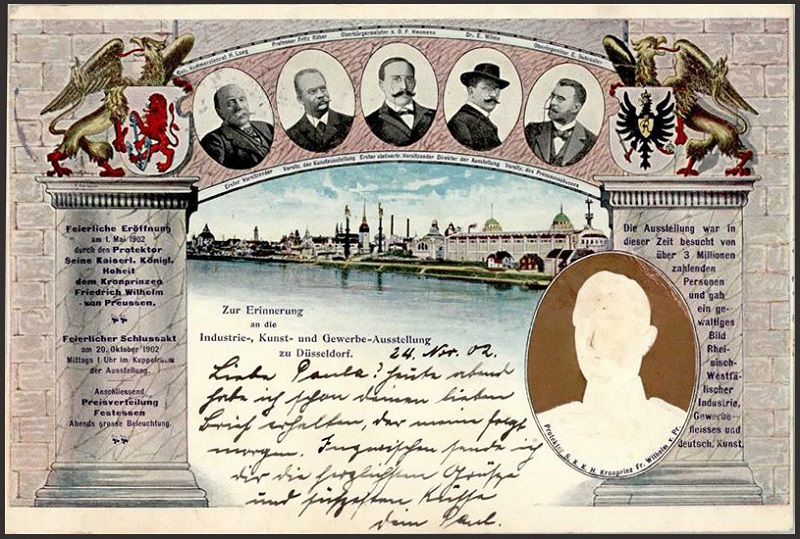 Geh. Kommerzienrat H. Lueg
Professor Fritz Röber
Oberbürgermeister a. D. F. Haumann
Dr. E. Wilms
Oberingenieur E. Schrödter
Erster Vorsitzender
Vorsitz. der Kunstausstellung
Erster stellvertr. Vorsitzender
Direktor der Ausstellung
Vorsitz. des Presseausschusses
Feierliche Eröffnung
am 1. Mai 1902
durch den Protektor
Seine Kaiserl. Königl.
Hoheit
dem Kronprinzen
Friedrich Wilhelm
von Preussen.
Feierlicher Schlussakt
am 20. Oktober 1902
Mittags 1 Uhr im Kuppelraum
der Ausstellung.
Anschliessend
Preisverteilung
Festessen
Abends grosse Beleuchtung.
Zur Erinnerung
an die
Industrie-, Kunst- und Gewerbe-Ausstellung
zu Düsseldorf.
24. Nov. 02.
Liebe Paula! Heute abend
habe ich schon deinen lieben
Brief erhalten, der meine folgt
morgen. Inzwischen sende ich
dir die herzlichsten Grüsse
und süssesten Küsse
dein Paul.
Die Ausstellung war in
dieser Zeit besucht von
über 3 Millionen
zahlenden
Personen
und gab
ein ge-
waltiges
Bild
Rhei-
nisch-
Westfä-
lischer
Industrie,
Gewerbe-
fleisses und
deutsch. Kunst.
Protektor S. K. K. H. Kronprinz Fr. Wilhelm v. Pr.